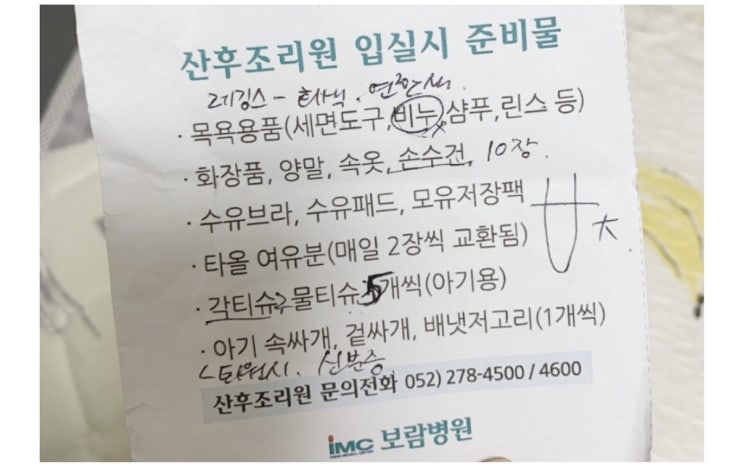 산후조리원 입실시 준비물
레깅스 - 회색. 연한색.
· 목욕용품(세면도구,비누,샴푸,린스 등)
· 화장품, 양말, 속옷, 손수건, 10장.
· 수유브라, 수유패드, 모유저장팩
· 타올 여유분(매일 2장씩 교환됨) 大
· 각티슈2 물티슈 5개씩(아기용)
· 아기 속싸개, 겉싸개, 배냇저고리(1개씩)
퇴원시. 신분증
산후조리원 문의전화 052) 278-4500 / 4600
iMC 보람병원